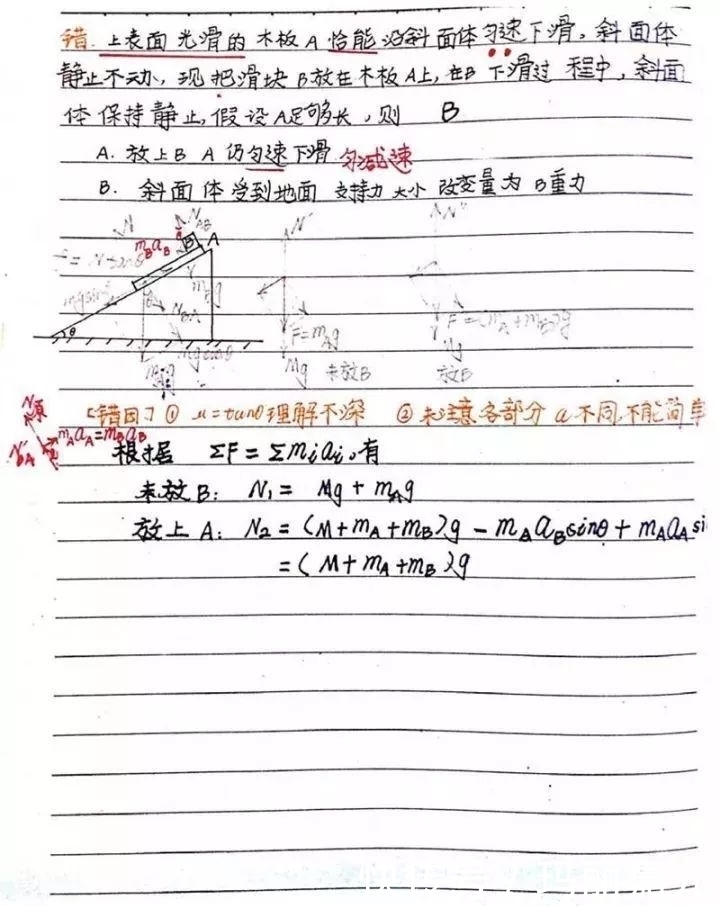 错. 上表面光滑的木板A恰能沿斜面体匀速下滑,斜面体
静止不动,现把滑块B放在木板A上,在B下滑过程中,斜面
体保持静止,假设A足够长,则 B
A. 放上B A仍匀速下滑 匀减速
B. 斜面体受到地面支持力大小改变量为B重力
N
N_AB
B A
m_B a_B
mgsinθ
N_BA
m_B g
θ
mgcosθ
N'
F=m_A g
Mg
未放B
N''
F=(m_A+m_B)g
Mg
放B
[错因] ① u=tanθ理解不深 ② 未注意各部分a不同,不能简单
m_A a_A=m_B a_B
N_BA
根据 ΣF=Σm_i a_i,有
未放B: N₁= Mg+m_A g
放上A: N₂=(M+m_A+m_B)g-m_A a_B sinθ+m_A a_A si
=(M+m_A+m_B)g